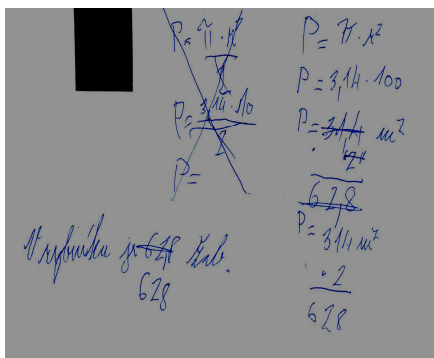 P = π · r²
2
P = 3,14 · 10
2
P =
P = π · r²
P = 3,14 · 100
P = 31,4 m²
· 2
62,8
P = 314 m²
· 2
628
V rybníku je 62,8 žab.
628